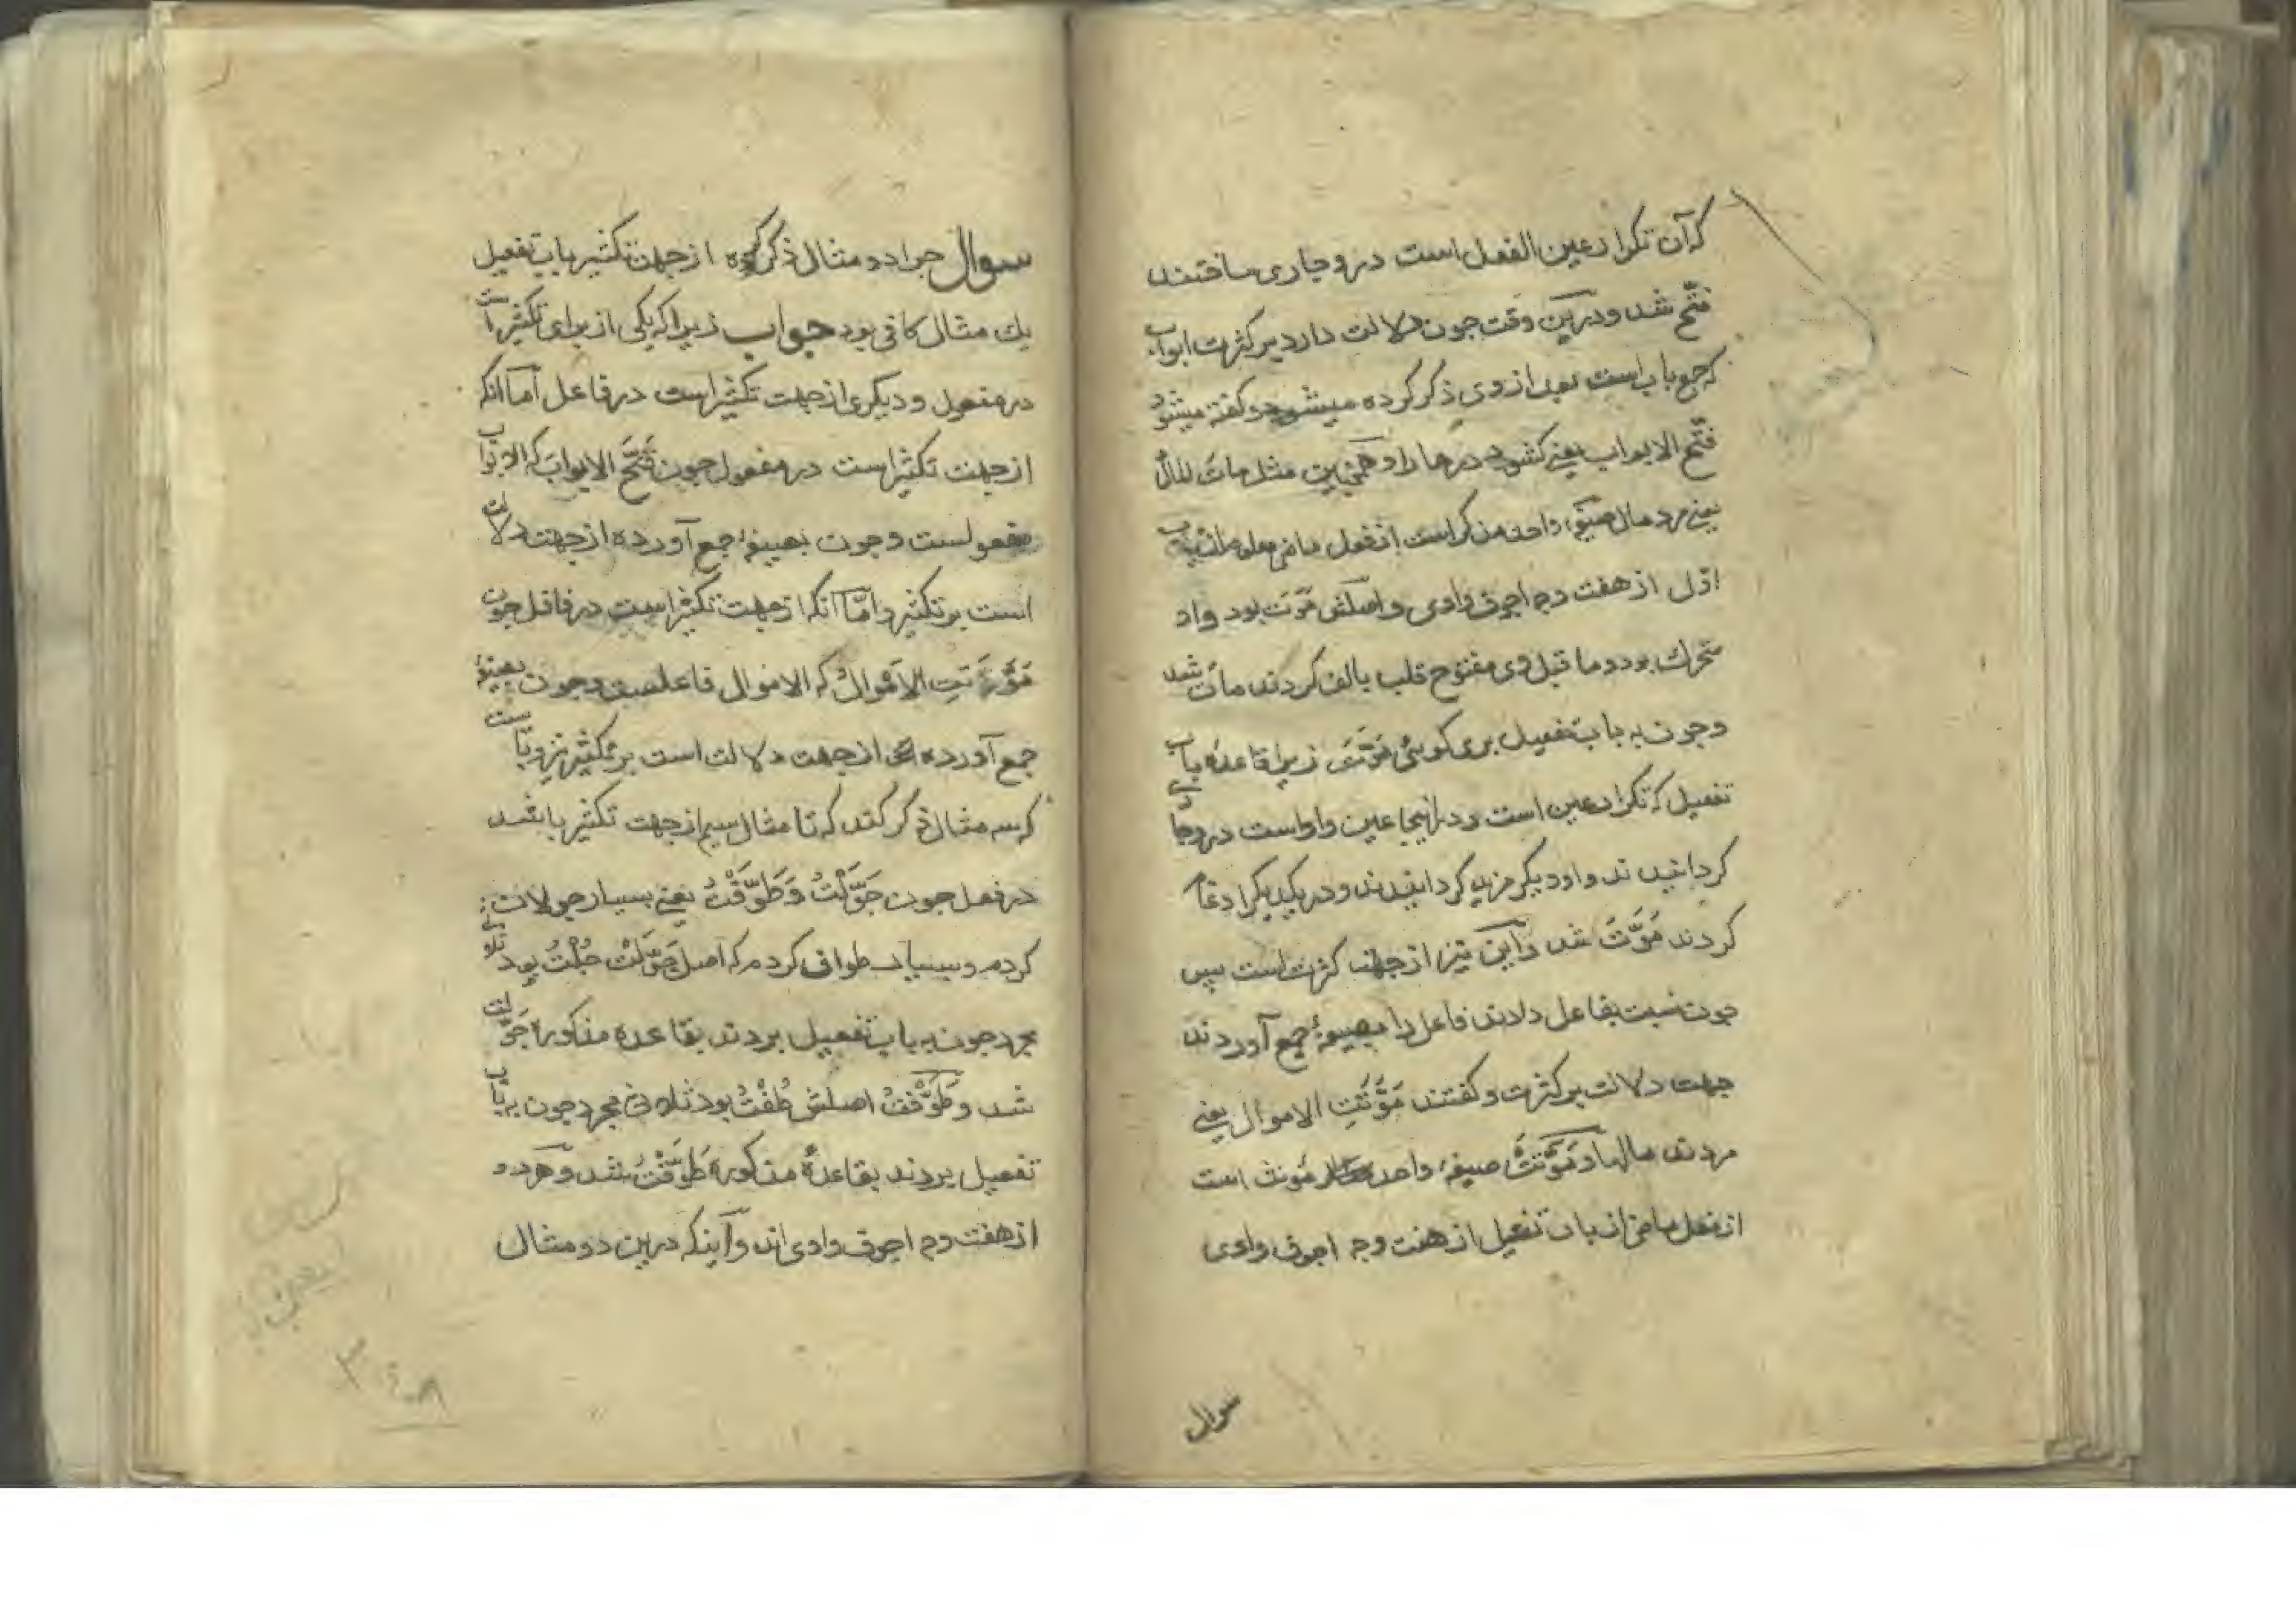 که آن تکرار عین الفعل است در و جاری ساختند
فتّح شد و درین وقت چون دلالت دارد بر کثرت ابواب
که جمع باب است بعد از وی ذکر کرده میشود و کفته میشود
فتّح الابواب یعنی کشود درها را و همچنین مثل مات المال
یعنی مرد مال صیغه واحد مذکر است از فعل ماضی معلوم از باب
اوّل از هفت وجه اجوف وادی و اصلش مَوَتَ بود واو
متحرك بود و ما قبل وی مفتوح قلب بالف کردند مات شد
و چون به باب تفعیل بری کویی مَوَّتَ زیرا قاعده باب
تفعیل که تکرار عین است و در اینجا عین واو است در و جاری
کردانیدند واو دیکر مزید کردانیدند و در یکدیکر ادغام
کردند مَوَّتَ شد و این نیز از جهت کثرت است پس
چون نسبت بفاعل دادند فاعل را بصیغهٔ جمع آوردند
جهت دلالت بر کثرت و کفتند مَوَّتَتِ الاموال یعنی
مردند مالها و مَوَّتَتْ صیغهٔ واحد مؤنث است
از فعل ماضی از باب تفعیل از هفت وجه اجوف وادی
سوال
سوال جرا دو مثال ذکر کرده از جهت تکثیر باب تفعیل
یك مثال کافی بود جواب زیرا که یکی از برای تکثیر است
در مفعول و دیکری از جهت تکثیر است در فاعل اما آنکه
از جهت تکثیر است در مفعول جون فَتَّحَ الابوابَ که الابواب
مفعولست و جون بصیغهٔ جمع آورده از جهت دلالت
است بر تکثیر و امّا آنکه از جهت تکثیر است در فاعل جون
مَوَّتَتِ الاَموالُ که الاموال فاعلست و جون بصیغهٔ
جمع آورده از جهت دلالت است بر تکثیر نیز و بایست
که سه مثال ذکر کند که تا مثال سیم از جهت تکثیر باشد
در فعل جون جَوَّلْتُ وَ طَوَّفْتُ یعنی بسیار جولان
کردم و بسیار طواف کردم که اصل جَوَّلْتُ جُلْتُ بود ثلاثی
مجرد جون به باب تفعیل بردند بقاعده مذکوره جَوَّلت
شد و طَوَّفْتُ اصلش طُفْتُ بود ثلاثی مجرد جون به باب
تفعیل بردند بقاعدهٔ مذکوره طَوَّفْتُ شد و هر دو
از هفت وجه اجوف وادی اند و آینکه درین دو مثال